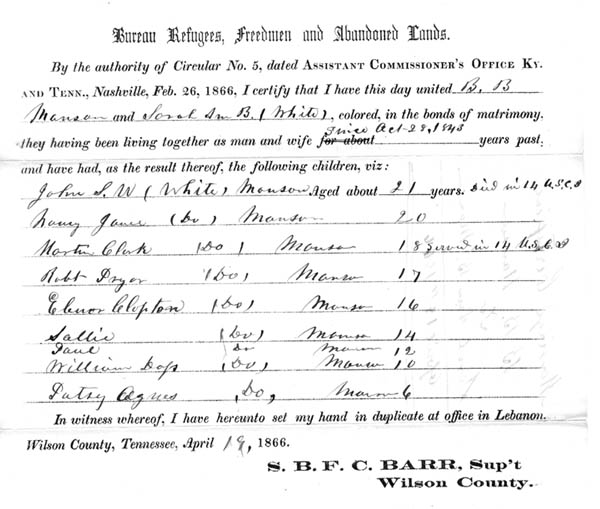 Bureau Refugees, Freedmen and Abandoned Lands.
By the authority of Circular No. 5, dated ASSISTANT COMMISSIONER'S OFFICE KY.
AND TENN., Nashville, Feb. 26, 1866, I certify that I have this day united B. B
Manson and Sarah Ann B. (White), colored, in the bonds of matrimony.
since Oct-28, 1843
they having been living together as man and wife for about years past,
and have had, as the result thereof, the following children, viz:
John S. W (White) Manson Aged about 21 years. Died in 14 U.S.C.I
Nancy Jane (Do) Manson 20
Martin Clark (Do) Manson 18 Served in 14 U.S.C.I
Robt Pryor (Do) Manson 17
Elenor Clopton (Do) Manson 16
Sallie (Do) Manson 14
Paul Do Manson 12
William (Do) Manson 10
Patsy Agnes Do, Manson 6
In witness whereof, I have hereunto set my hand in duplicate at office in Lebanon.
Wilson County, Tennessee, April 19, 1866.
S. B. F. C. BARR, Sup't
Wilson County.